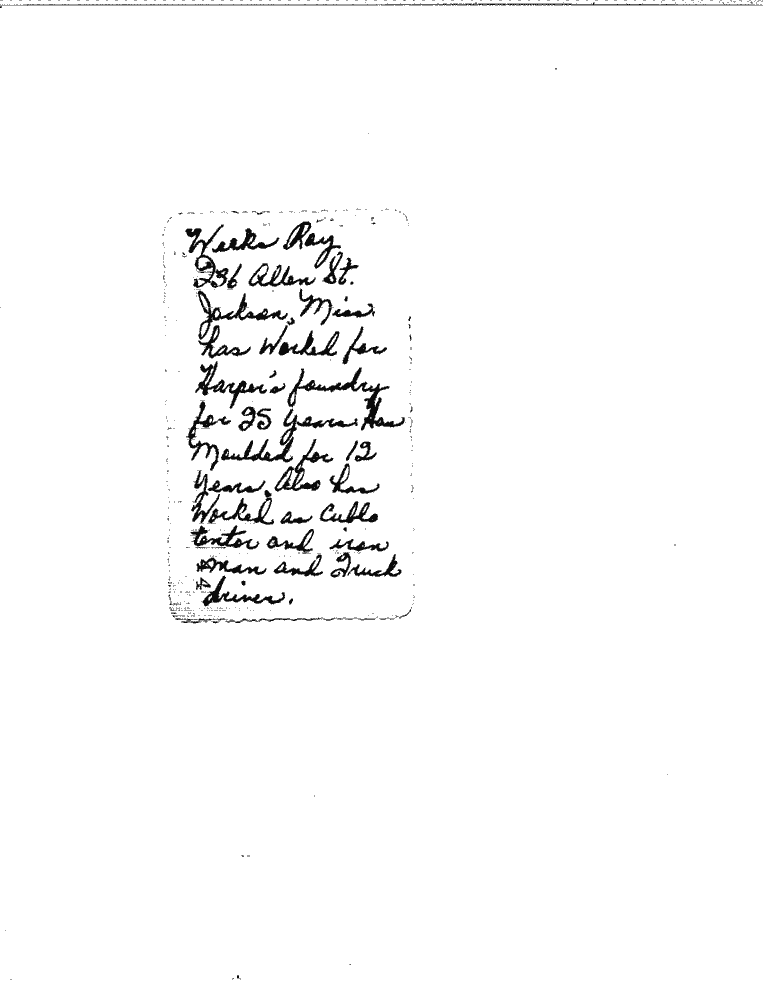 Weeks Ray
236 Allen St.
Jackson, Miss.
has Worked for
Harper's foundry
for 25 years. Has
Moulded for 12
Years. Also has
Worked as Cublo
tentor and iron
man and Truck
driver.